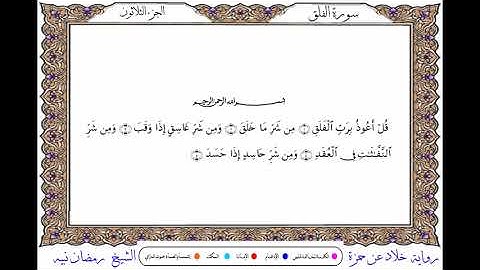 سورة الفلق
الجزء الثلاثون
بسم الله الرحمن الرحيم
قُلْ أَعُوذُ بِرَبِّ ٱلْفَلَقِ ۝ مِن شَرِّ مَا خَلَقَ ۝ وَمِن شَرِّ غَاسِقٍ إِذَا وَقَبَ ۝ وَمِن شَرِّ
ٱلنَّفَّٰثَٰتِ فِي ٱلْعُقَدِ ۝ وَمِن شَرِّ حَاسِدٍ إِذَا حَسَدَ ۝
رواية خلاد عن حمزة
الإدغام
الإمالة
السكت
الشيخ رمضان نبيه